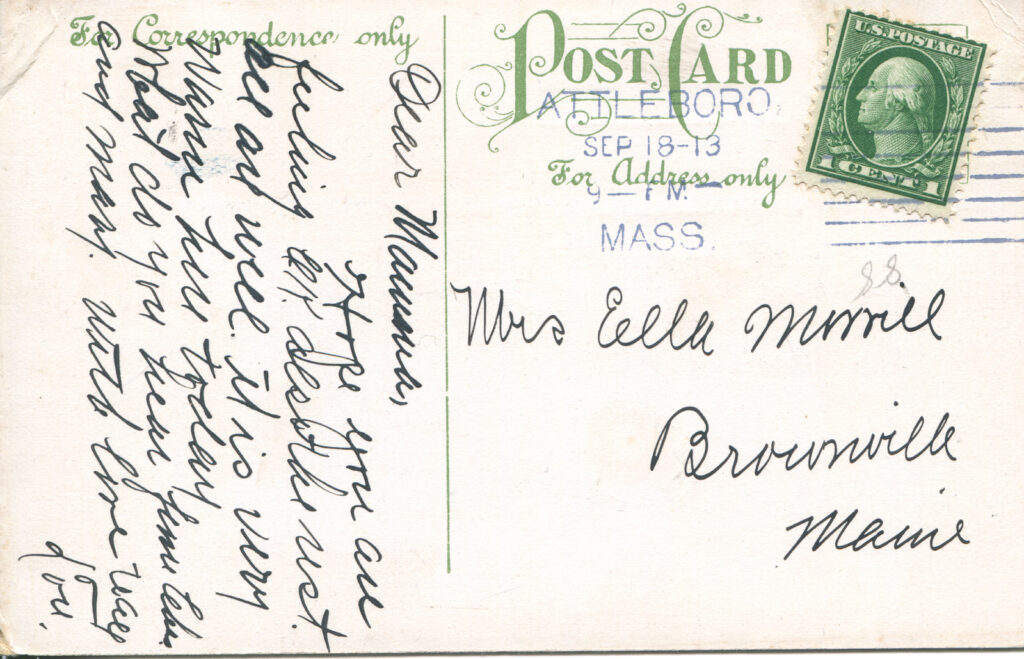 For Correspondence only
Dear Mamma,
Hope you are
feeling better as the rest.
are all well. it is very
Warm here today
What do you hear from
and May. with love
Lou.
POST CARD
For Address only
ATTLEBORO,
SEP 18-13
9 — P M
MASS.
U.S. POSTAGE
1 CENT 1
88
Mrs Ella Morrill
Brownville
Maine